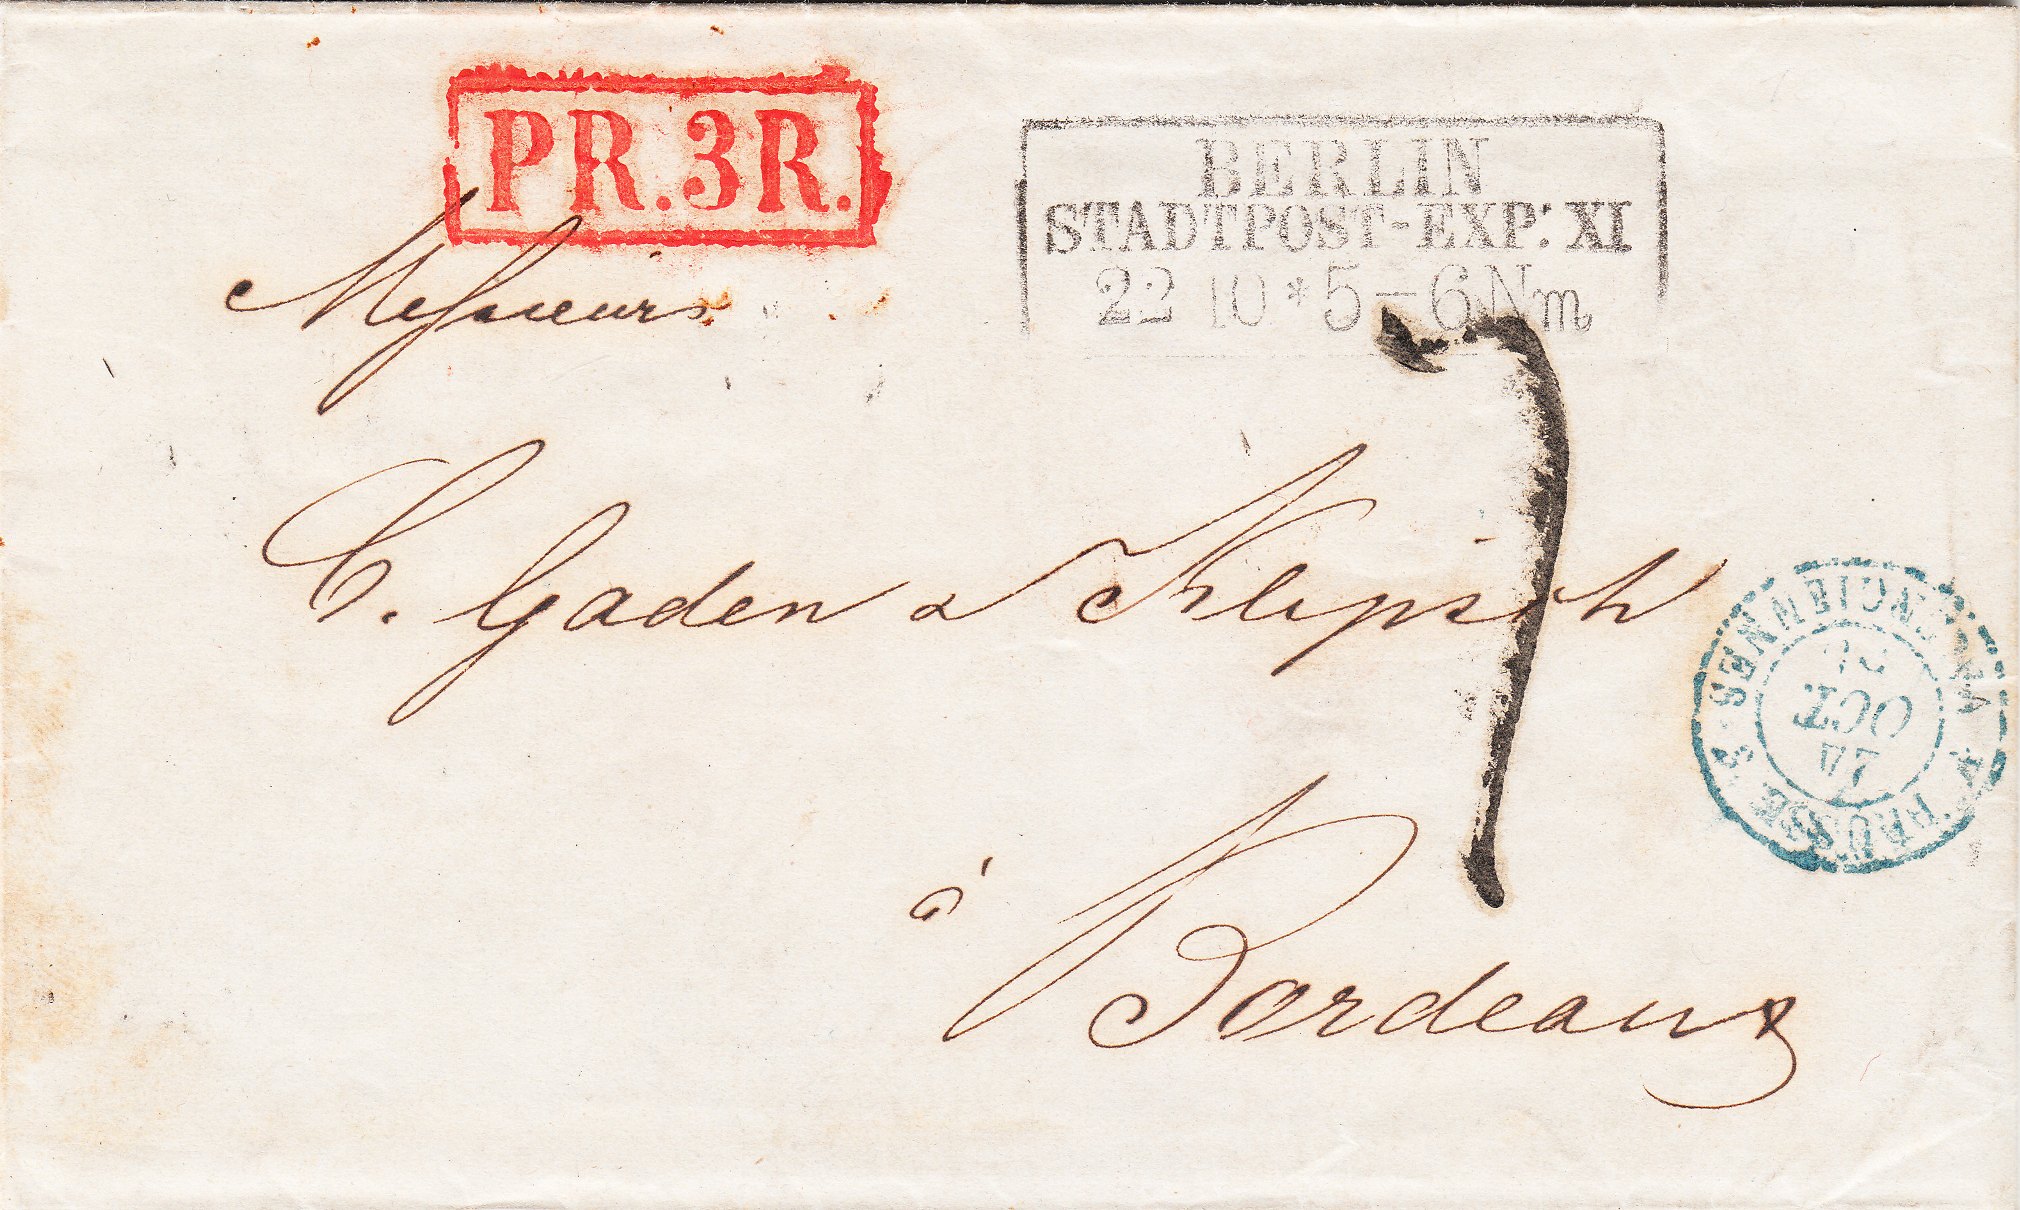 PR.3R.
BERLIN
STADTPOST-EXP: XI
22 10 * 5-6 Nm
Messieurs
C. Gaden & Klipsch
à Bordeaux
7
PRUSSE
VALENCIENNES
OCT.